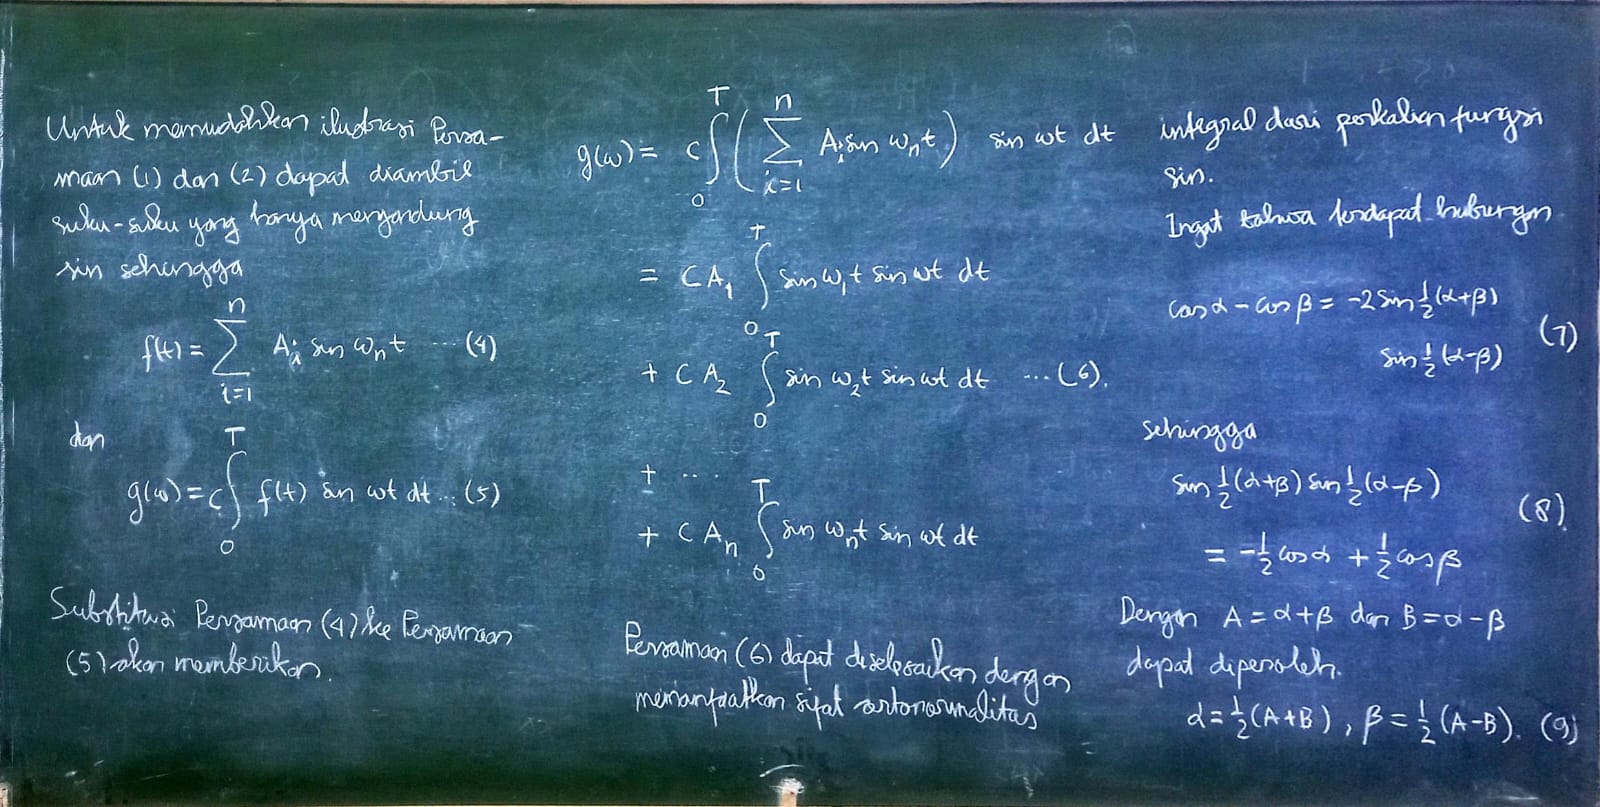 Untuk memudahkan ilustrasi Persa-
maan (1) dan (2) dapat diambil
suku-suku yang hanya mengandung
sin sehingga
f(t) = \sum_{i=1}^{n} A_i sin ω_n t ... (4)
dan
g(ω) = c \int_0^T f(t) sin ωt dt ... (5)
Substitusi Persamaan (4) ke Persamaan
(5) akan memberikan.
g(ω) = c \int_0^T ( \sum_{i=1}^{n} A_i sin ω_n t ) sin ωt dt
= C A_1 \int_0^T sin ω_1 t sin ωt dt
+ C A_2 \int_0^T sin ω_2 t sin ωt dt ... (6).
+ ....
+ C A_n \int_0^T sin ω_n t sin ωt dt
Persamaan (6) dapat diselesaikan dengan
memanfaatkan sifat ortonormalitas
integral dari perkalian fungsi
sin.
Ingat bahwa terdapat hubungan
cos α - cos β = -2 sin ½(α+β)
sin ½(α-β) (7)
sehingga
sin ½(α+β) sin ½(α-β)
= -½ cos α + ½ cos β (8).
Dengan A = α+β dan B = α-β
dapat diperoleh.
α = ½(A+B), β = ½(A-B). (9)